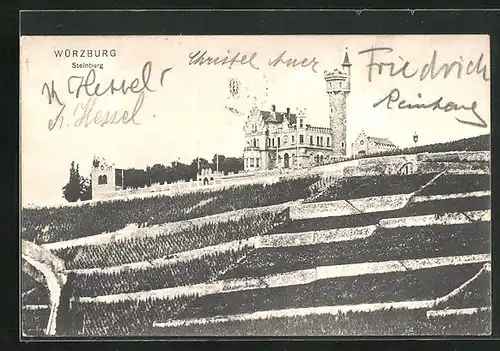 WÜRZBURG
Steinburg
H. Hessel
K. Hessel
Christel Auer
Friedrich
Reinhang